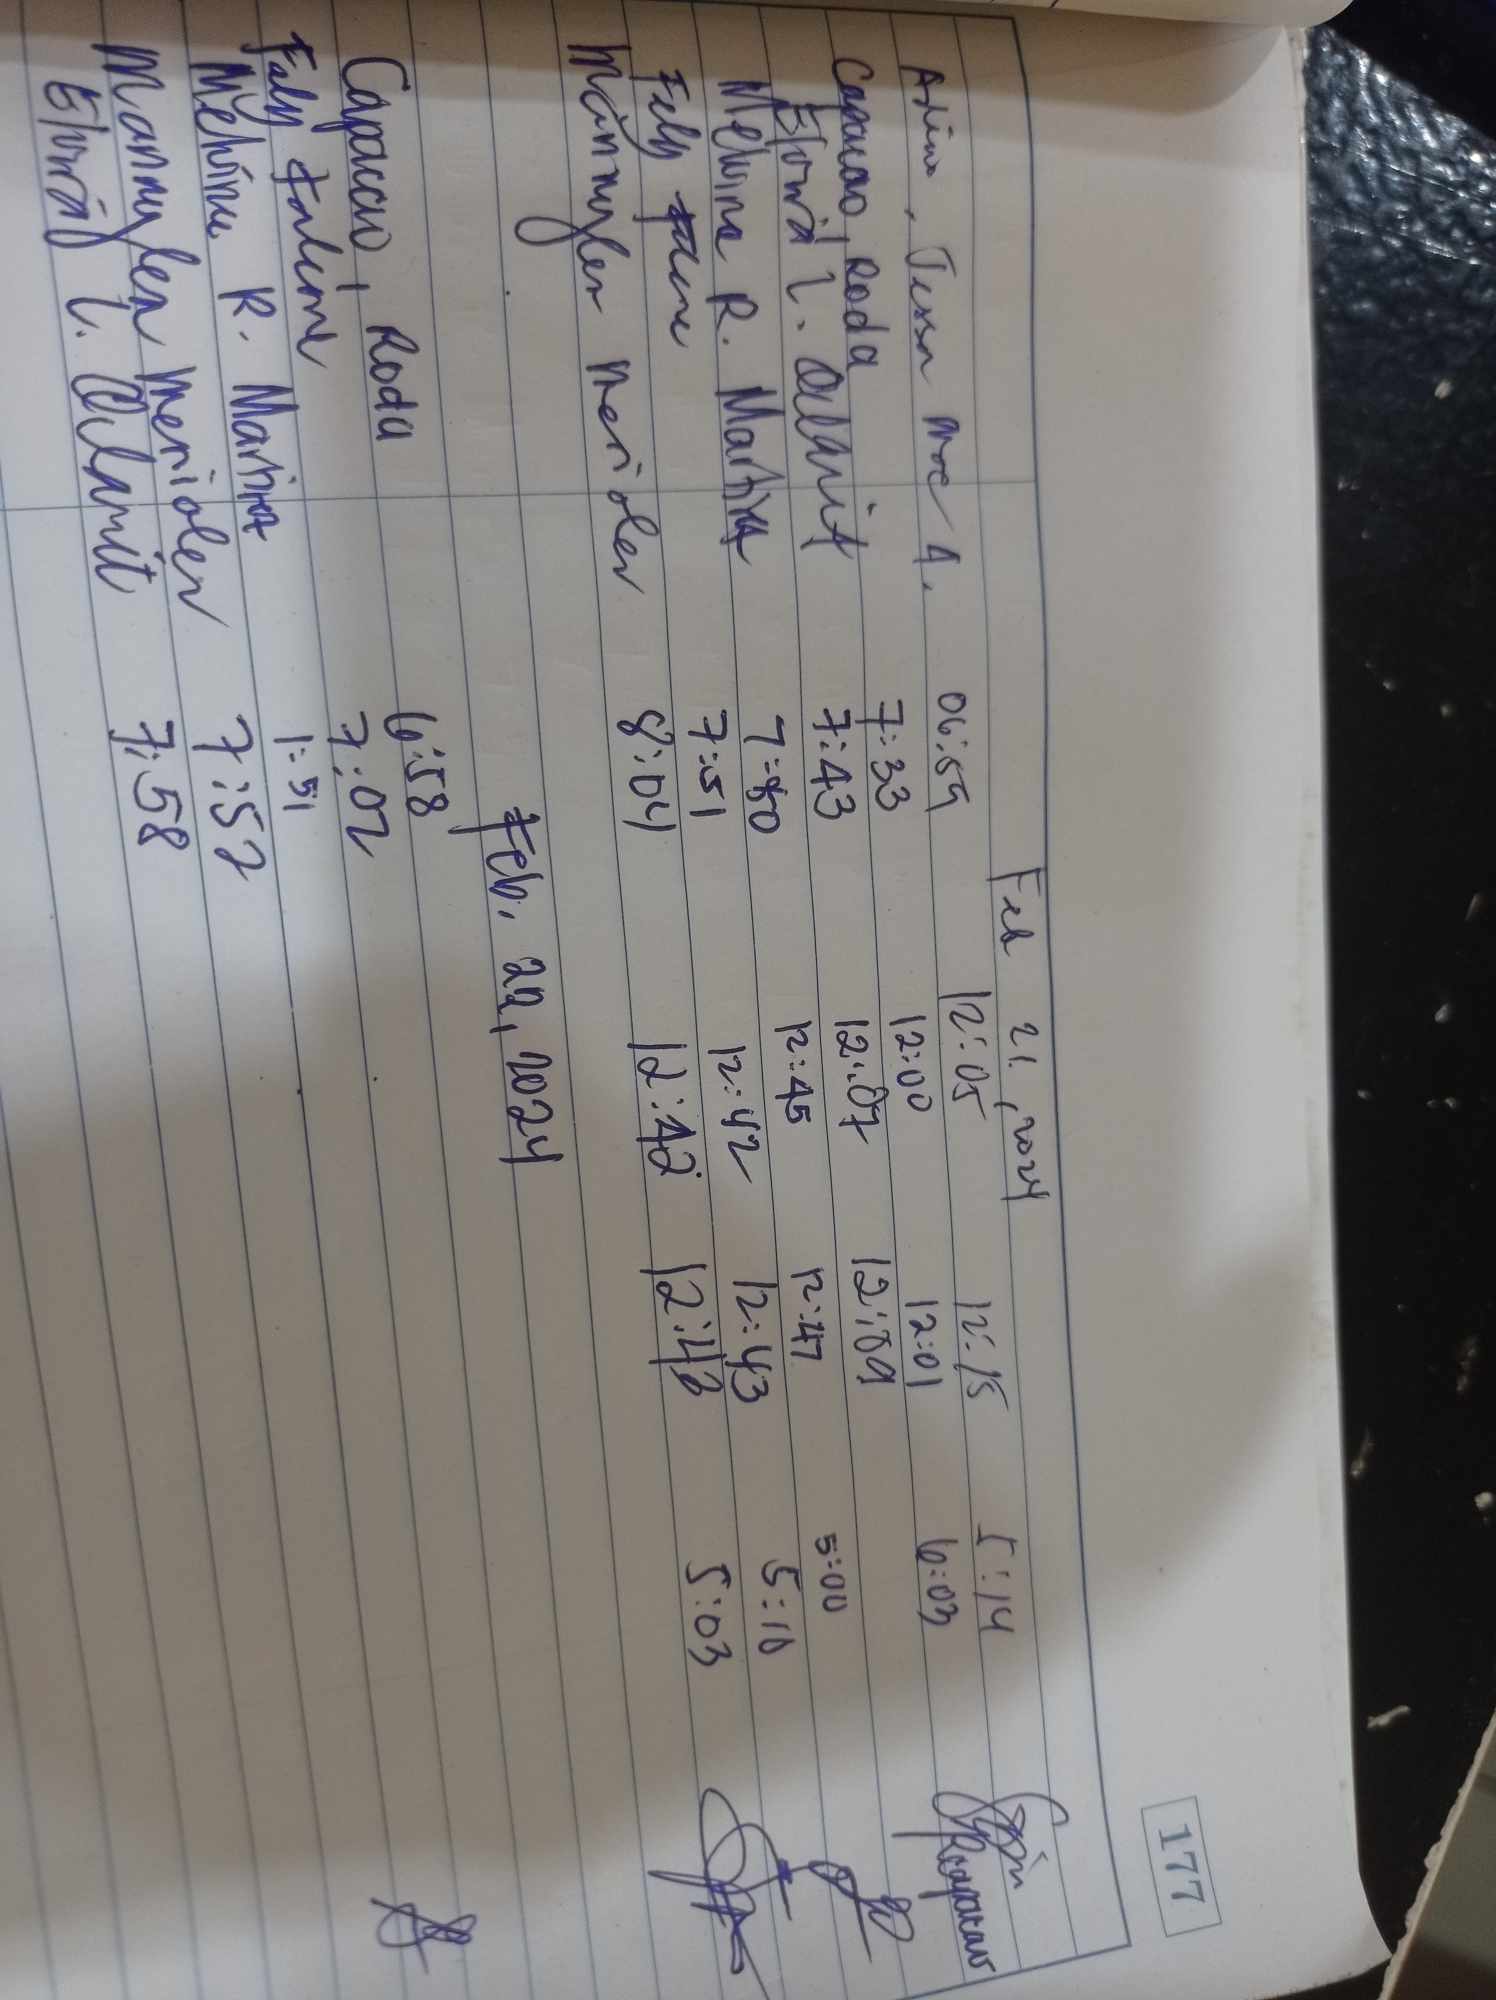 177
Feb 21, 2024
Tessa Mae A. 06:59 12:05 12:15 5:14
Capacao, Roda 7:33 12:00 12:01 6:03 Rcapacao
L. Dilanit 7:43 12:07 12:09
Melvina R. Martita 7:50 12:45 12:47 5:00
Fely 7:51 12:42 12:43 5:10
Mannylen Meriolen 8:04 12:42 12:43 5:03
Feb. 22, 2024
6:58
Capacao, Roda 7:02
Fely 7:51
Melvina R. Martita 7:52
Mannylen Meriolen 7:58
L. Dilanit